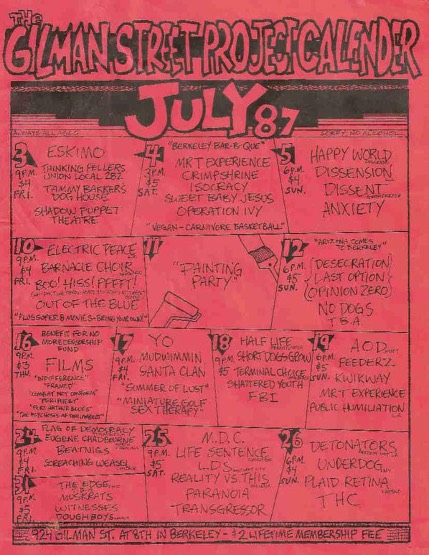 THE
GILMAN STREET PROJECT CALENDER
JULY 87
ALWAYS ALL AGES
SORRY, NO ALCOHOL
3
9 P.M.
$4
FRI.
ESKIMO
THINKING FELLERS
UNION LOCAL 282
TAMMY BAKKERS
DOG HOUSE
SHADOW PUPPET
THEATRE
4
3 P.M.
$5
SAT.
"BERKELEY BAR-B-QUE"
MR T EXPERIENCE
CRIMPSHRINE
ISOCRACY
SWEET BABY JESUS
OPERATION IVY
"VEGAN-CARNIVORE BASKETBALL"
5
6 P.M.
$4
SUN.
HAPPY WORLD
DISSENSION
DISSENT
ANXIETY
10
9 P.M.
$4
FRI.
ELECTRIC PEACE
BARNACLE CHOIR
BOO! HISS! PFFFT!
OUT OF THE BLUE
"PLUS SUPER 8 MOVIES-BRING YOUR OWN!"
11
"PAINTING
PARTY"
12
6 P.M.
$5
SUN.
"ARIZONA COMES
TO BERKELEY"
DESECRATION
LAST OPTION
OPINION ZERO
NO DOGS
T.B.A.
16
9 P.M.
$3
THU
BENEFIT FOR NO
MORE CENSORSHIP
FUND
FILMS
"INDIFFERENCE"
"FRAMED"
17
9 P.M.
$4
FRI.
YO
MUDWIMMIN
SANTA CLAN
"SUMMER OF LUST"
"MINIATURE GOLF
SEX THERAPY"
18
9 P.M.
$5
SAT.
HALF LIFE
SHORT DOGS GROW
TERMINAL CHOICE
SHATTERED YOUTH
FBI
19
6 P.M.
$5
SUN.
AOD
FEEDERZ
KWIKWAY
MR T EXPERIENCE
PUBLIC HUMILIATION
24
9 P.M.
$4
FRI
FLAG OF DEMOCRACY
EUGENE CHADBOURNE
BEATNIGS
SCREACHING WEASEL
25
9 P.M.
$5
SAT.
M.D.C.
LIFE SENTENCE
L.D.S.
REALITY VS THIS
PARANOIA
TRANSGRESSOR
26
6 P.M.
$4
SUN
DETONATORS
UNDERDOG
PLAID RETINA
THC
31
9 P.M.
$5
FRI
THE EDGE
MUSKRATS
WITNESSES
DOUGHBOYS
924 GILMAN ST. AT 8TH IN BERKELEY - $2 LIFETIME MEMBERSHIP FEE